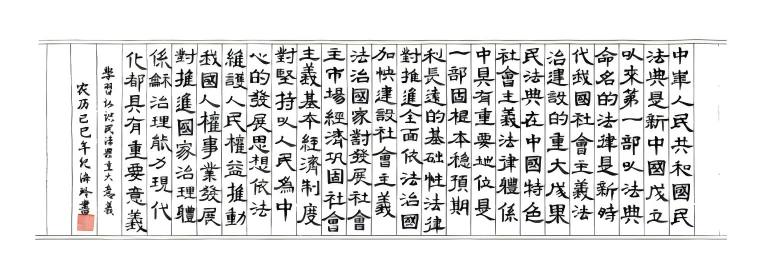 中華人民共和國民
法典是新中國成立
以來第一部以法典
命名的法律是新時
代我國社會主義法
治建設的重大成果
民法典在中國特色
社會主義法律體係
中具有重要地位是
一部固根本稳預期
利長遠的基础性法律
對推進全面依法治國
加快建設社會主義
法治國家對發展社會
主市場經濟巩固社會
主義基本經濟制度
對堅持以人民為中
心的發展思想依法
維護人民權益推動
我國人權事業發展
對推進國家治理體
係龢治理能力現代
化都具有重要意義
學習认识民法典重大意義
农历己巳年纪海玲書